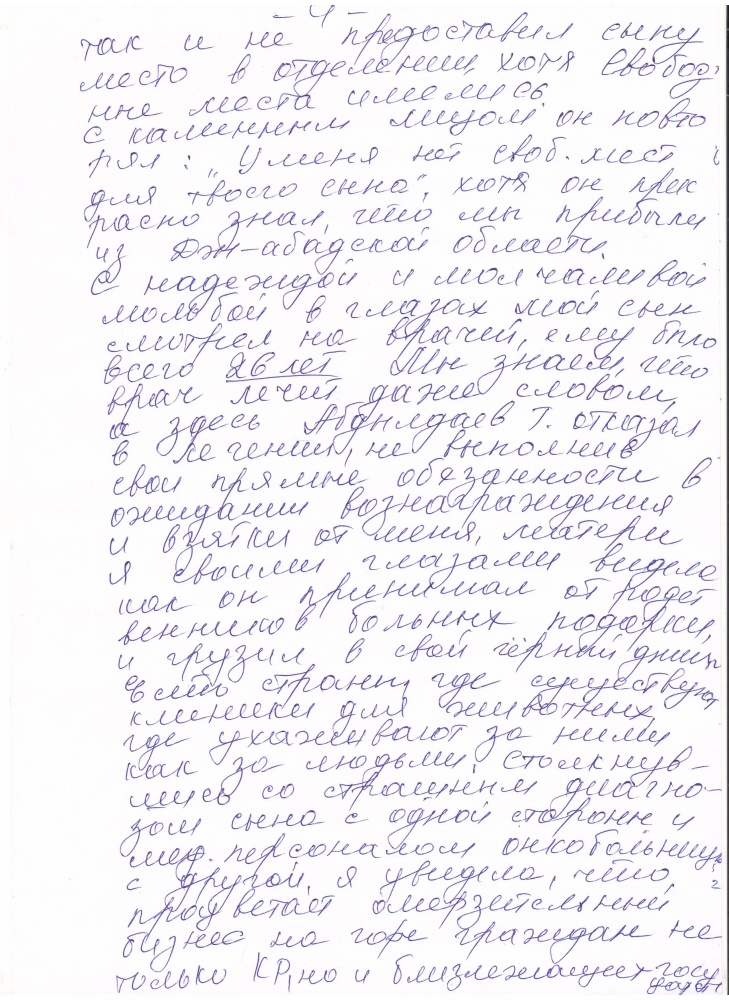 - 4 -
так и не предоставил сыну
место в отделении, хотя свобод-
ные места имелись.
С каменным лицом он повто
рял: "У меня нет своб. мест
для твоего сына", хотя он прек
расно знал, что мы прибыли
из Дж-абадской области.
С надеждой и молчаливой
мольбой в глазах мой сын
смотрел на врачей, ему было
всего 26 лет Мы знаем, что
врач лечит даже словом,
а здесь Абдылдаев Т. отказал
в лечении, не выполнив
свои прямые обязанности в
ожидании вознаграждения
и взятки от меня, матери
я своими глазами видела
как он принимал от родст
венников больных подарки,
и грузил в свой чёрный джип
Есть страны, где существуют
клиники для животных,
где ухаживают за ними
как за людьми. Столкнув-
шись со страшным диагно-
зом сына с одной стороны и
мед. персоналом онкобольницы
с другой, я увидела, что
процветает омерзительный
бизнес на горе граждан не
только КР, но и близлежащих госу
дарств